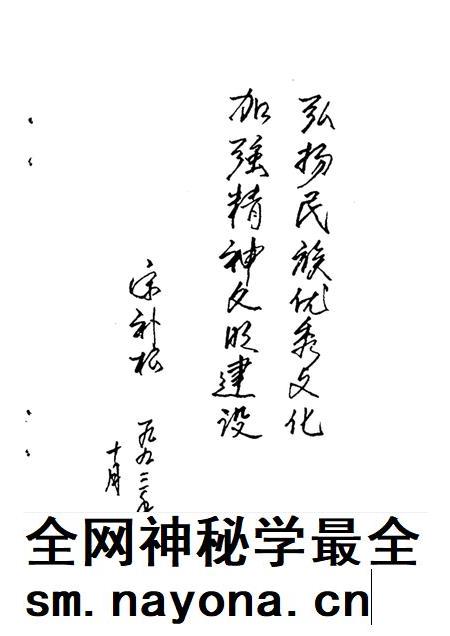 弘扬民族优秀文化
加强精神文明建设
一九九三年
十月
全网神秘学最全
sm.nayona.cn